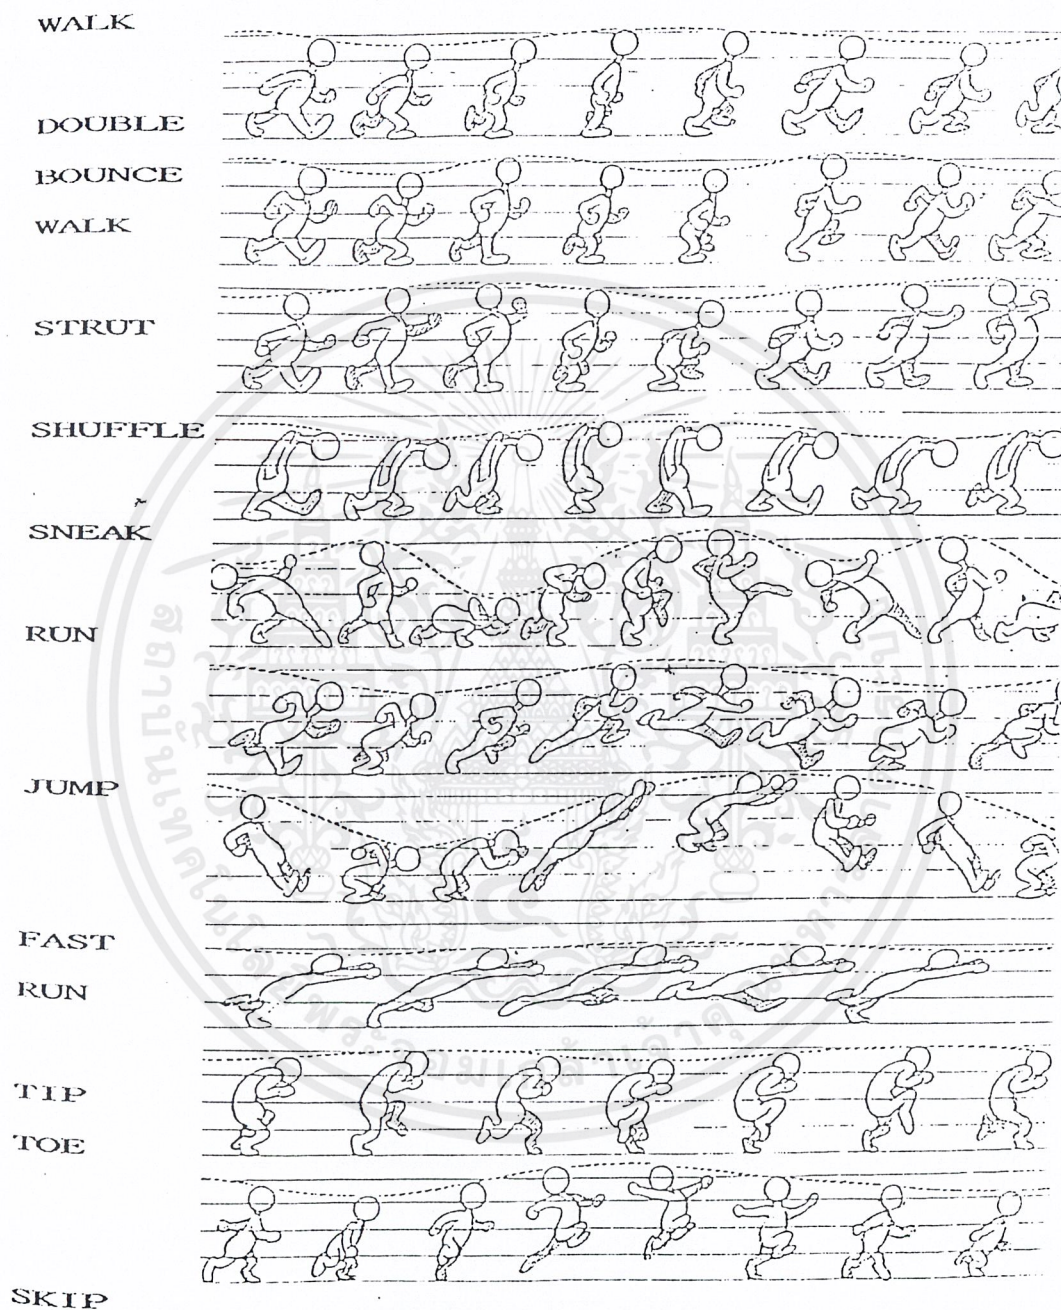 WALK
DOUBLE
BOUNCE
WALK
STRUT
SHUFFLE
SNEAK
RUN
JUMP
FAST
RUN
TIP
TOE
SKIP